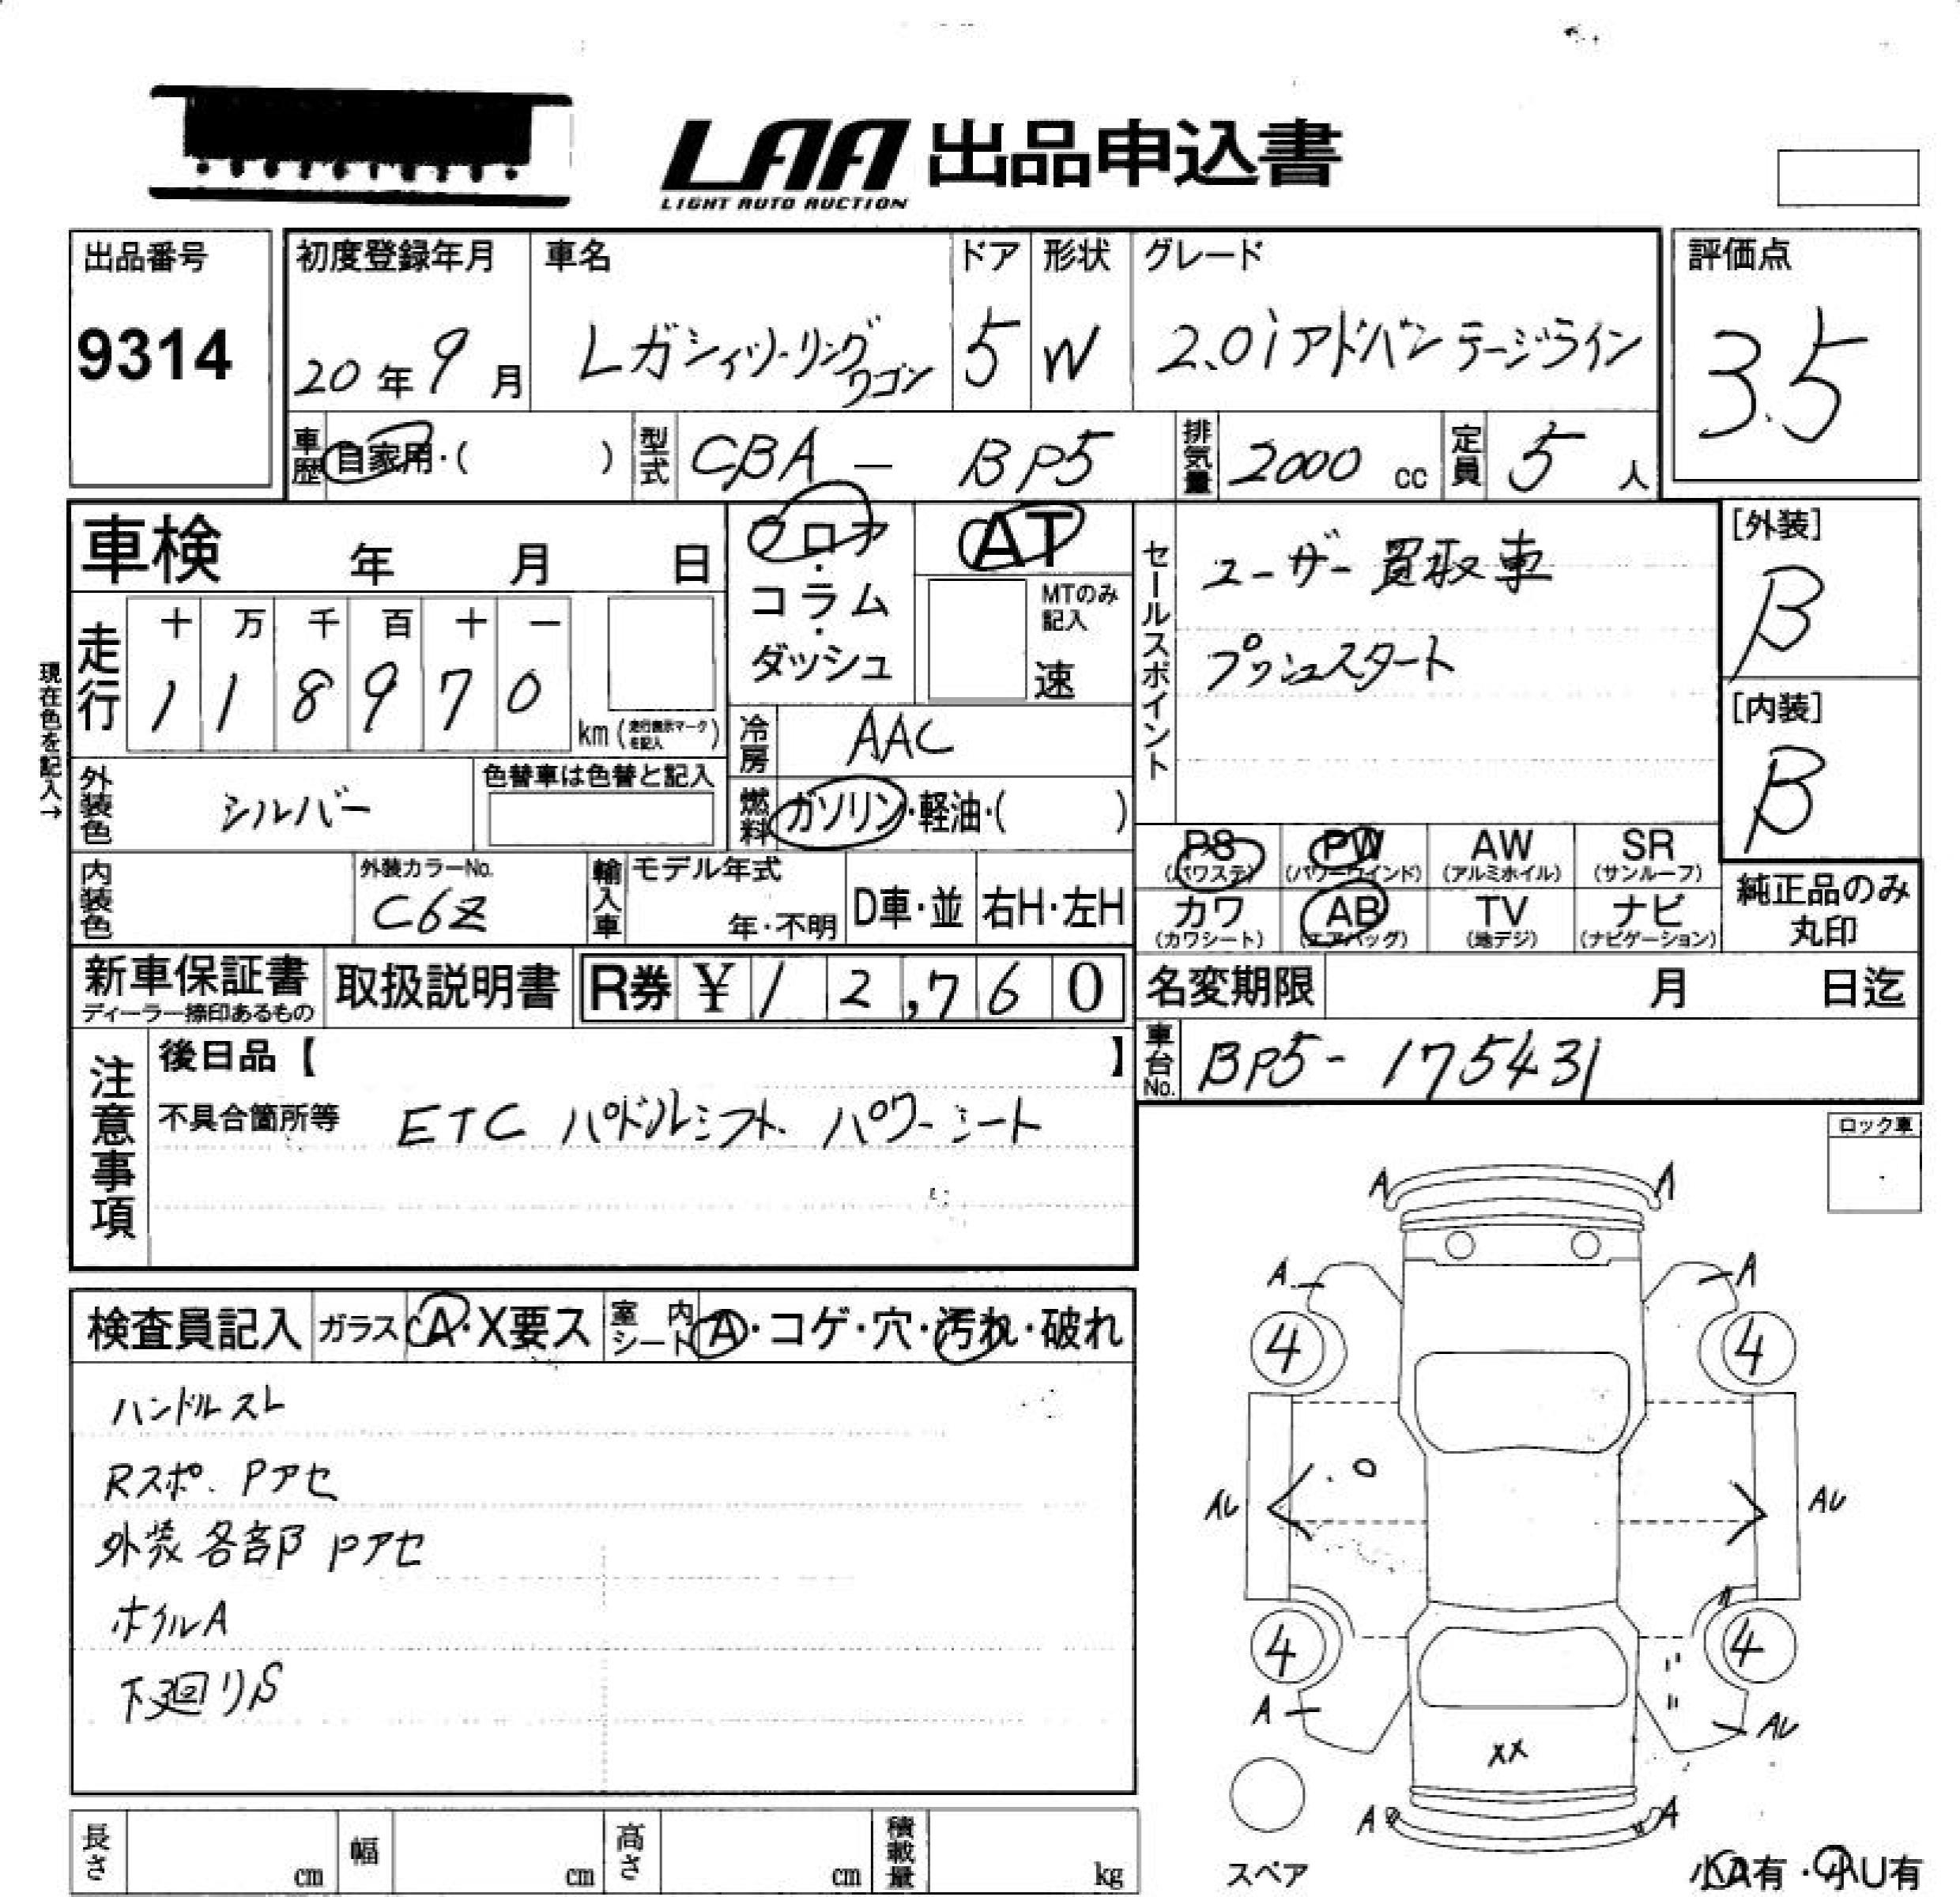 LAA 出品申込書
LIGHT AUTO AUCTION
出品番号
9314
初度登録年月
20年9月
車名
レガシィツーリングワゴン
ドア
5
形状
W
グレード
2.0iアドバンテージライン
評価点
3.5
車歴
自家用・( )
型式
CBA - BP5
排気量
2000 cc
定員
5人
車検 年 月 日
フロア・コラム・ダッシュ
AT
MTのみ記入
速
走行
十 万 千 百 十 一
1 1 8 9 7 0
km(走行表示マークを記入)
現在色を記入→
冷房
AAC
外装色
シルバー
色替車は色替と記入
燃料
ガソリン・軽油・( )
内装色
外装カラーNo.
C6Z
輸入車
モデル年式
年・不明
D車・並
右H・左H
セールスポイント
ユーザー買取車
プッシュスタート
[外装]
B
[内装]
B
PS(パワステ) PW(パワーウインド) AW(アルミホイル) SR(サンルーフ)
カワ(カワシート) AB(エアバッグ) TV(地デジ) ナビ(ナビゲーション)
純正品のみ丸印
新車保証書
ディーラー捺印あるもの
取扱説明書
R券 ¥12,760
名変期限 月 日迄
車台No.
BP5-175431
注意事項
後日品【 】
不具合箇所等 ETC パドルシフト パワーシート
ロック車
検査員記入
ガラス A・X要ス
室内シート A・コゲ・穴・汚れ・破れ
ハンドルスレ
Rスポ.Pアセ
外装各部Pアセ
ホイルA
下廻りS
A A
A A
4 4
AU AU
4 4
A AU
XX
A A
スペア
小A有・小U有
長さ cm
幅 cm
高さ cm
積載量 kg